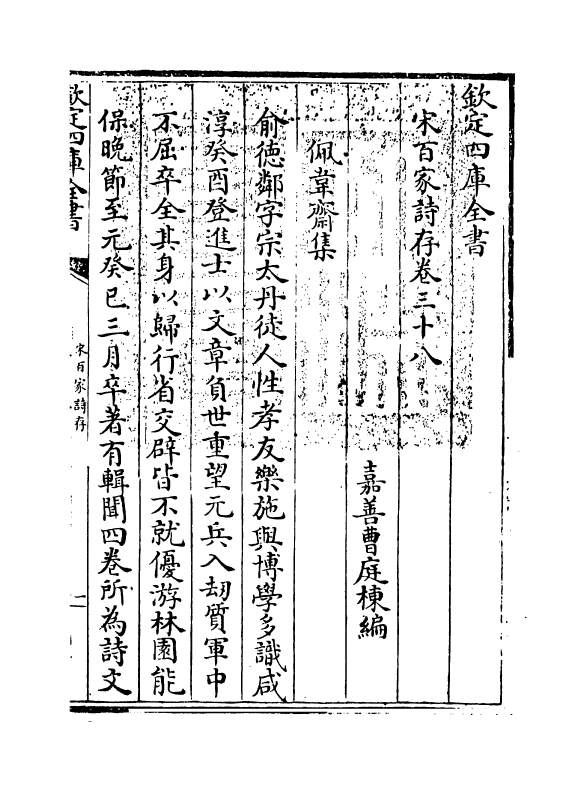 欽定四庫全書
宋百家詩存卷三十八
嘉善曹庭棟編
佩韋齋集
俞德鄰字宗太丹徒人性孝友樂施與博學多識咸
淳癸酉登進士以文章負世重望元兵入刼質軍中
不屈卒全其身以歸行省交辟皆不就優游林園能
保晚節至元癸巳三月卒著有輯聞四卷所為詩文
欽定四庫全書
宋百家詩存